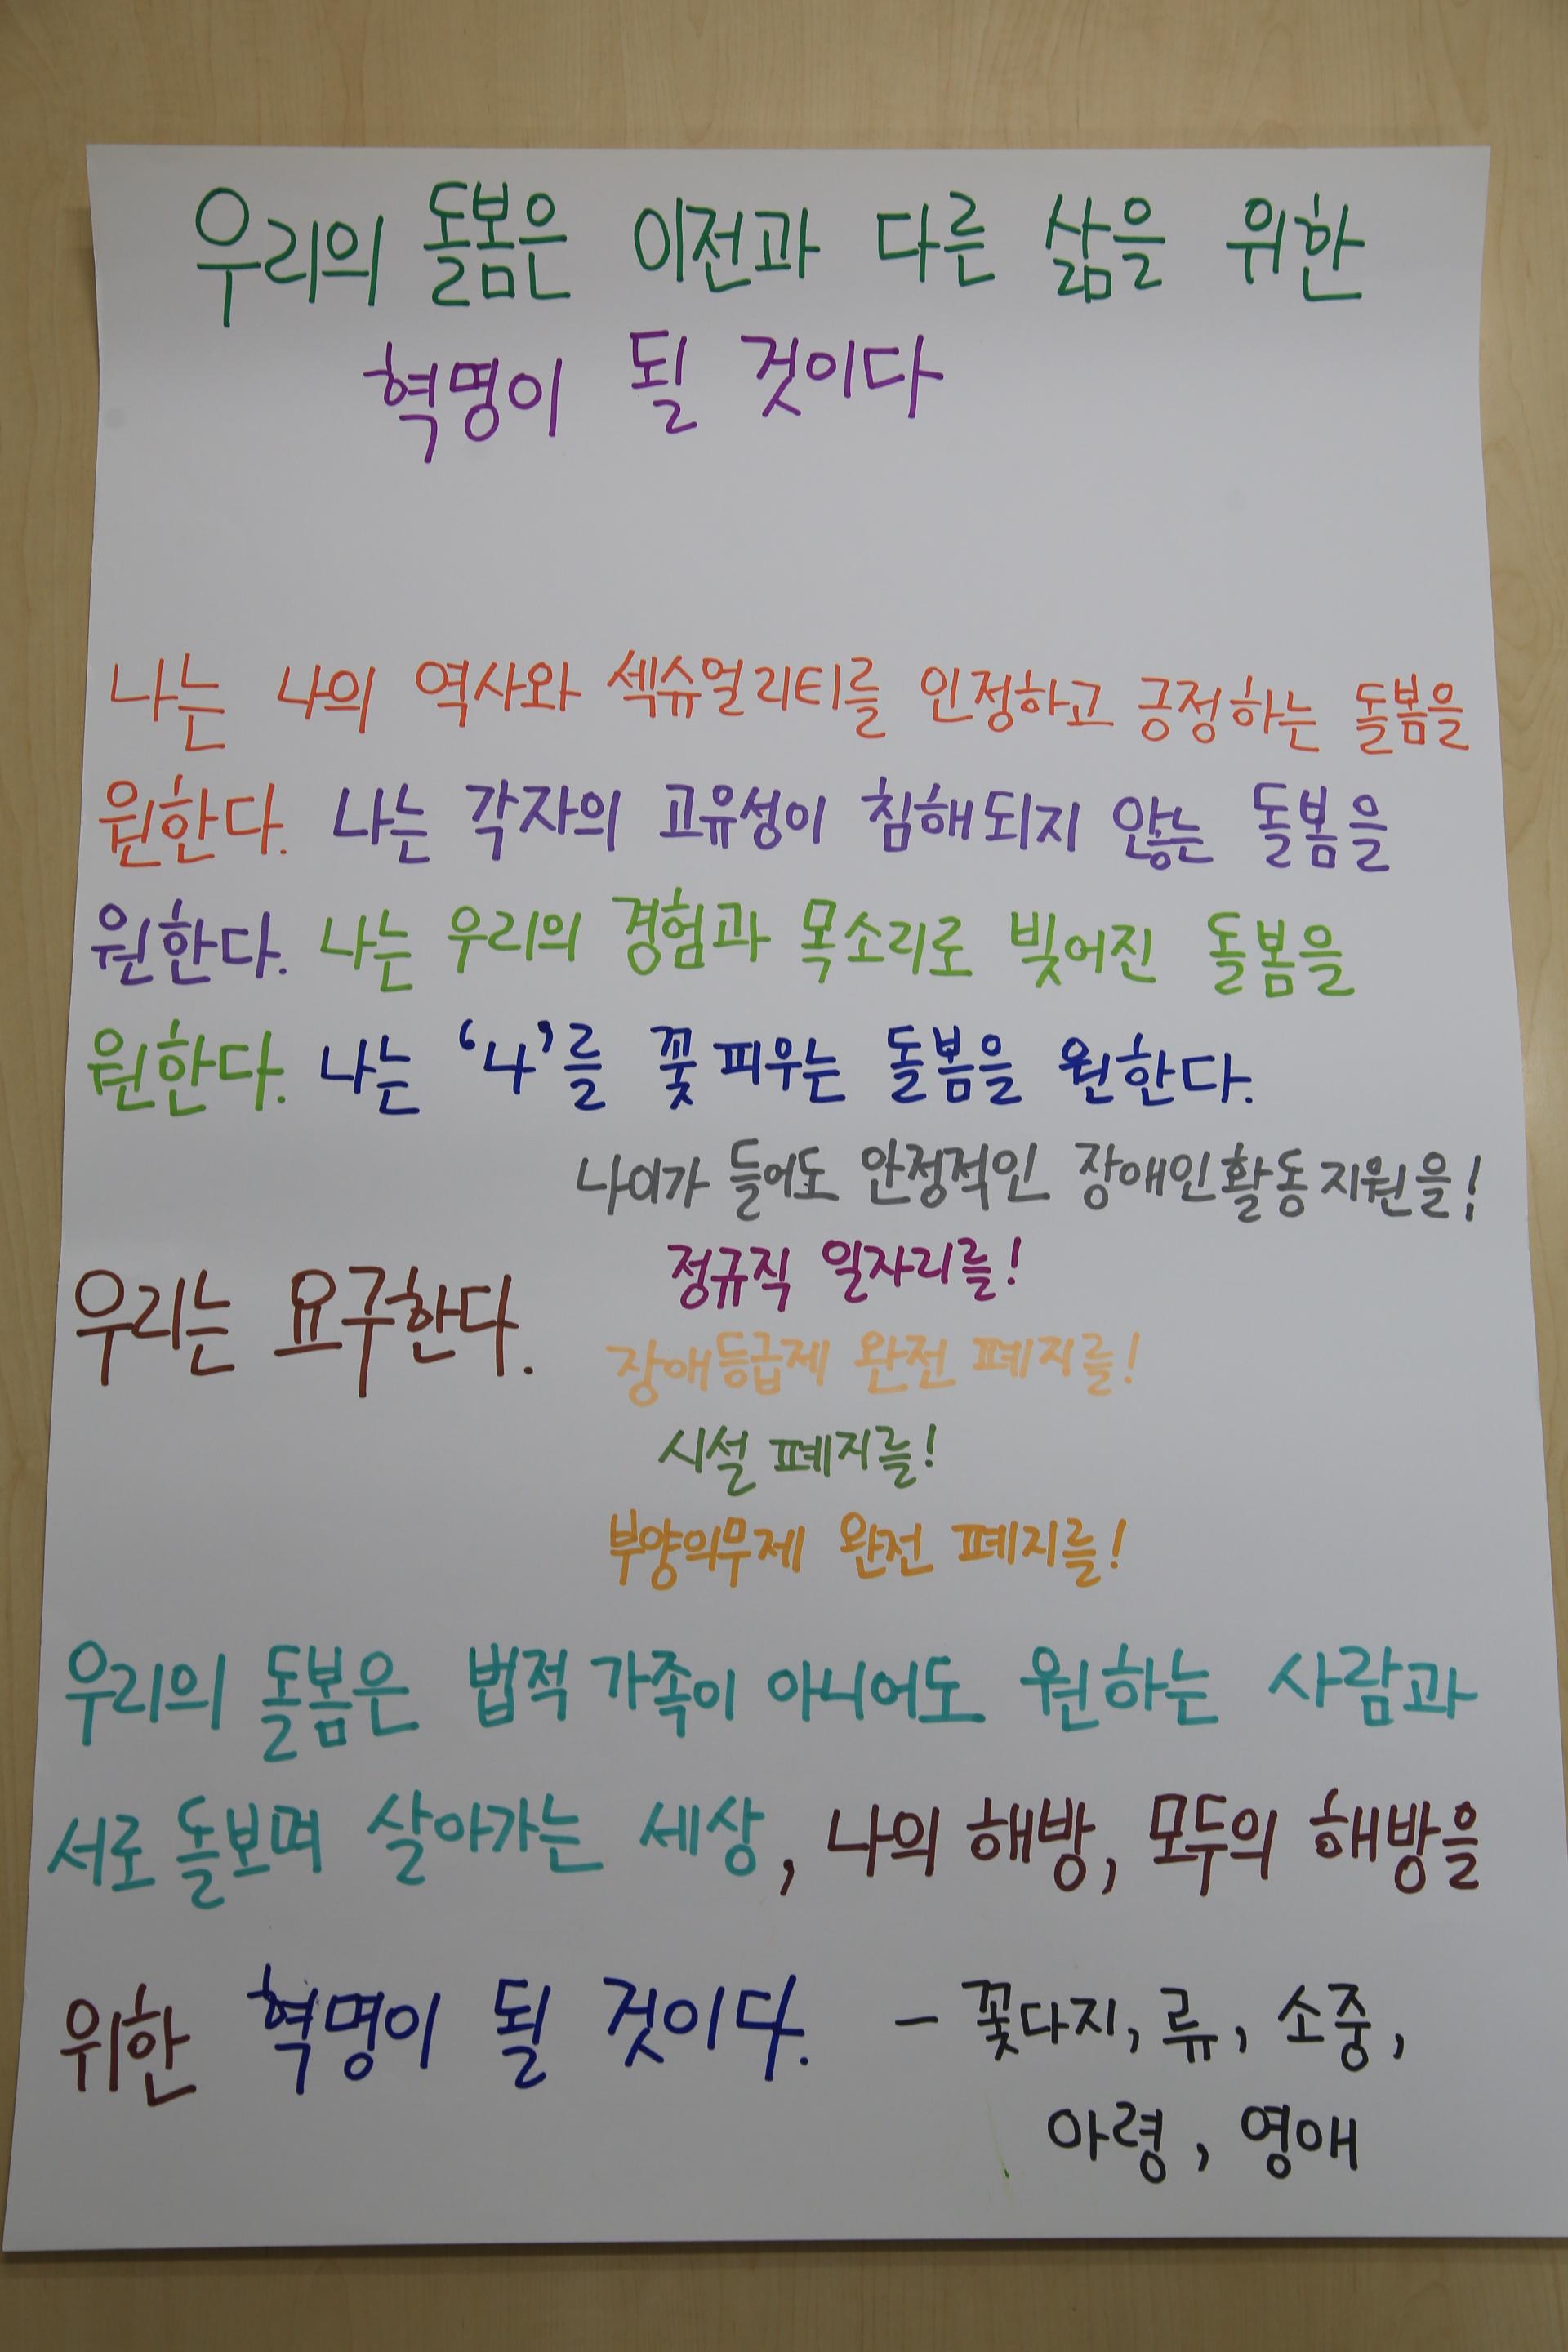 우리의 돌봄은 이전과 다른 삶을 위한
혁명이 될 것이다
나는 나의 역사와 섹슈얼리티를 인정하고 긍정하는 돌봄을
원한다. 나는 각자의 고유성이 침해되지 않는 돌봄을
원한다. 나는 우리의 경험과 목소리로 빚어진 돌봄을
원한다. 나는 ‘나’를 꽃 피우는 돌봄을 원한다.
나이가 들어도 안정적인 장애인활동지원을!
정규직 일자리를!
우리는 요구한다.
장애등급제 완전 폐지를!
시설 폐지를!
부양의무제 완전 폐지를!
우리의 돌봄은 법적 가족이 아니어도 원하는 사람과
서로 돌보며 살아가는 세상, 나의 해방, 모두의 해방을
위한 혁명이 될 것이다. - 꽃다지, 류, 소중,
아령, 영애